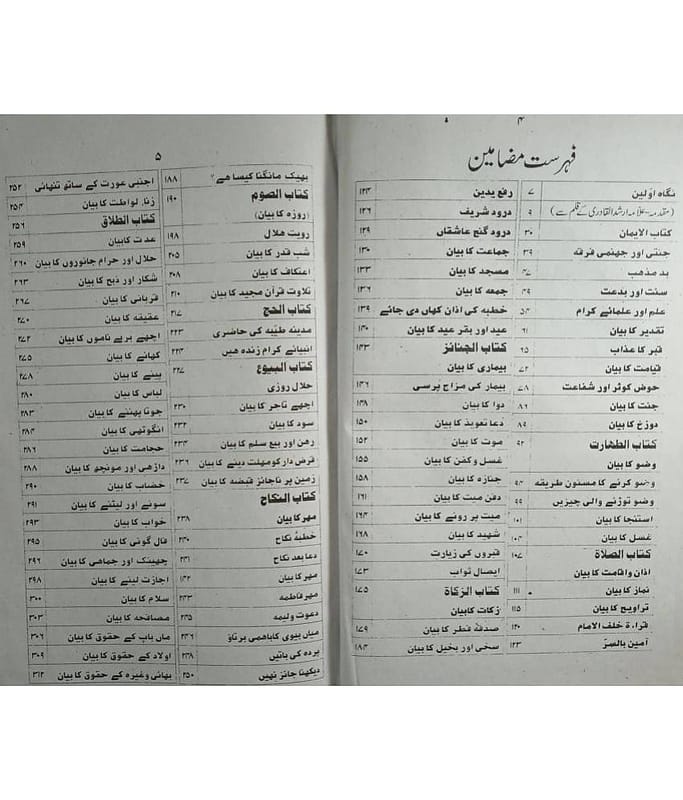 ۴
فہرست مضامین
نگاہ اوّلین ۷
(مقدمہ - علامہ ارشد القادری کے قلم سے) ۹
کتاب الایمان ۳۰
جنتی اور جہنمی فرقہ ۳۹
بد مذہب ۴۷
سنت اور بدعت ۴۹
علم اور علمائے کرام ۵۴
تقدیر کا بیان ۶۱
قبر کا عذاب ۶۵
قیامت کا بیان ۷۲
حوض کوثر اور شفاعت ۷۸
جنت کا بیان ۸۶
دوزخ کا بیان ۸۹
کتاب الطھارت ۹۲
وضو کا بیان
وضو کرنے کا مسنون طریقہ ۹۴
وضو توڑنے والی چیزیں ۹۹
استنجا کا بیان ۱۰۱
غسل کا بیان ۱۰۴
کتاب الصلاۃ ۱۰۷
اذان و اقامت کا بیان
نماز کا بیان ۱۱۱
تراویح کا بیان ۱۱۵
قراءۃ خلف الامام ۱۲۰
آمین بالسرّ ۱۲۳
رفع یدین ۱۲۴
درود شریف ۱۲۶
درود گنج عاشقاں ۱۲۹
جماعت کا بیان ۱۳۰
مسجد کا بیان ۱۳۳
جمعہ کا بیان ۱۳۶
خطبہ کی اذان کہاں دی جائے ۱۳۹
عید اور بقر عید کا بیان ۱۴۰
کتاب الجنائز ۱۴۳
بیماری کا بیان
بیمار کی مزاج پرسی ۱۴۶
دوا کا بیان ۱۴۸
دعا تعویذ کا بیان ۱۵۰
موت کا بیان ۱۵۲
غسل و کفن کا بیان ۱۵۵
جنازہ کا بیان ۱۵۸
دفن میت کا بیان ۱۶۱
میت پر رونے کا بیان ۱۶۴
شہید کا بیان ۱۶۸
قبروں کی زیارت ۱۷۰
ایصال ثواب ۱۷۳
کتاب الزکاۃ ۱۷۵
زکات کا بیان
صدقۂ فطر کا بیان ۱۷۹
سخی اور بخیل کا بیان ۱۸۴
۵
بھیک مانگنا کیسا ھے؟ ۱۸۸
کتاب الصوم ۱۹۰
(روزہ کا بیان)
رویت ھلال ۱۹۸
شب قدر کا بیان ۲۰۵
اعتکاف کا بیان ۲۰۸
تلاوت قرآن مجید کا بیان ۲۱۰
کتاب الحج ۲۱۷
مدینہ طیّبہ کی حاضری ۲۲۳
انبیائے کرام زندہ ھیں ۲۲۴
کتاب البیوع ۲۲۷
حلال روزی
اچھے تاجر کا بیان ۲۳۰
سود کا بیان ۲۳۲
رھن اور بیع سلم کا بیان ۲۳۴
قرض دار کو مہلت دینے کا بیان ۲۳۶
زمین پر ناجائز قبضہ کا بیان ۲۳۷
کتاب النکاح
مہر کا بیان ۲۳۸
خطبۂ نکاح ۲۴۰
دعا بعد نکاح ۲۴۱
مہر کا بیان
مہر فاطمہ ۲۴۳
دعوت ولیمہ ۲۴۵
میاں بیوی کا باھمی برتاؤ ۲۴۶
پردہ کی باتیں ۲۴۸
دیکھنا جائز نہیں ۲۵۰
اجنبی عورت کے ساتھ تنھائی ۲۵۲
زنا، لواطت کا بیان ۲۵۴
کتاب الطلاق ۲۵۶
عدت کا بیان ۲۵۹
حلال اور حرام جانوروں کا بیان ۲۶۰
شکار اور ذبح کا بیان ۲۶۳
قربانی کا بیان ۲۶۷
عقیقہ کا بیان ۲۷۰
اچھے برے ناموں کا بیان ۲۷۲
کھانے کا بیان ۲۷۵
پینے کا بیان ۲۷۸
لباس کا بیان ۲۸۰
جوتا پہننے کا بیان ۲۸۳
انگوٹھی کا بیان ۲۸۴
حجامت کا بیان ۲۸۶
داڑھی اور مونچھ کا بیان ۲۸۸
خضاب کا بیان ۲۹۰
سونے اور لیٹنے کا بیان ۲۹۱
خواب کا بیان ۲۹۳
فال گوئی کا بیان ۲۹۵
چھینک اور جماھی کا بیان ۲۹۶
اجازت لینے کا بیان ۲۹۸
سلام کا بیان ۳۰۰
مصافحہ کا بیان ۳۰۳
ماں باپ کے حقوق کا بیان ۳۰۶
اولاد کے حقوق کا بیان ۳۰۹
بھائی وغیرہ کے حقوق کا بیان ۳۱۲